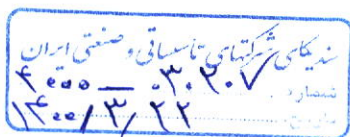 سندیکای شرکتهای تاسیساتی و صنعتی ایران
شماره ۴۰۰۰ — ۳۰۲۰۷
تاریخ ۱۴۰۰/۳/۲۲